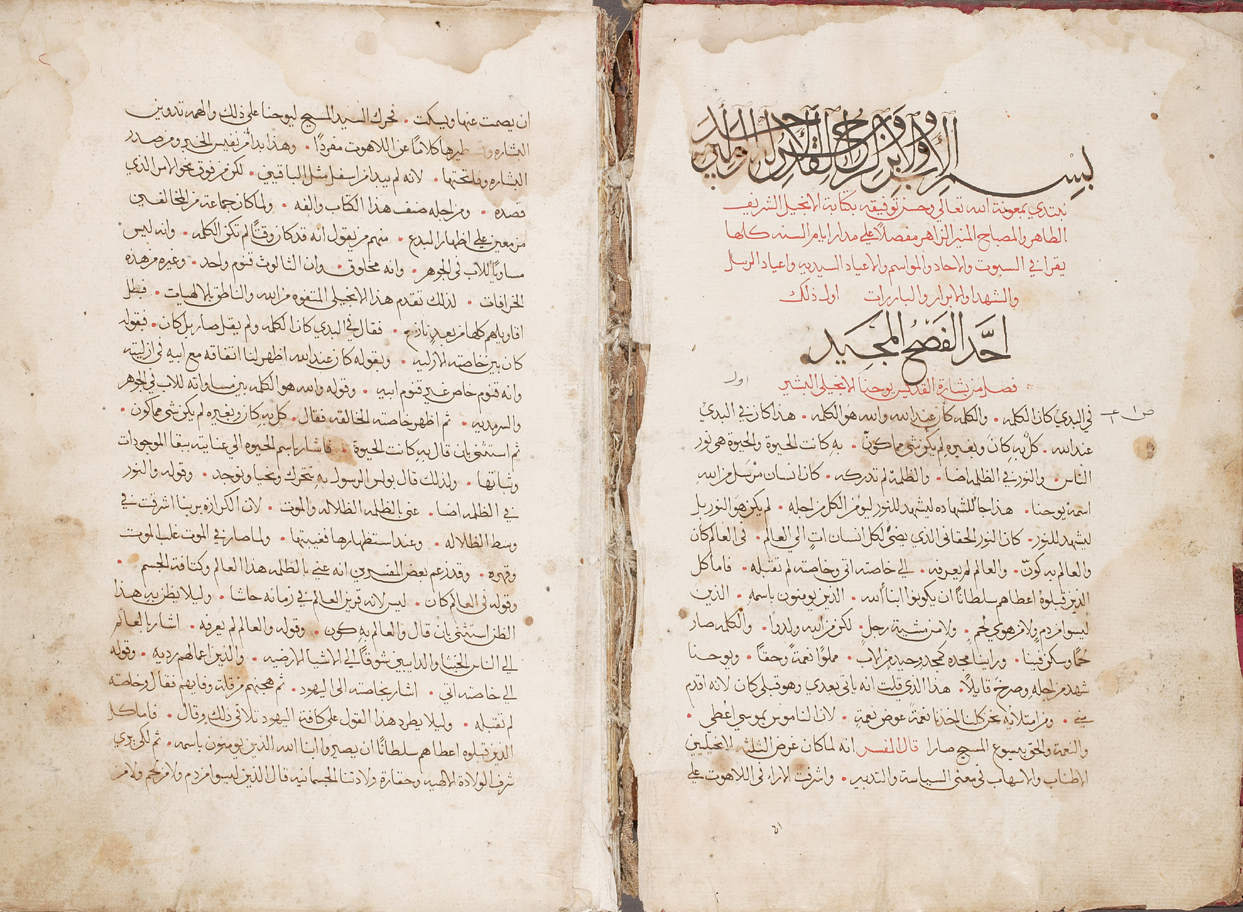 بسم الاب والابن والروح القدس الاله الواحد
نبتدي بمعونة الله تعالي وحسن توفيقه بكتابة الانجيل الشريف
الطاهر والمصباح المنير الزاهر مفصلاً علي مدار ايام السنه كلها
يقرا في السبوت والاحاد والمواسم والاعياد السيديه واعياد الرسل
والشهدا والابرار والبارات اول ذلك
احد الفصح المجيد
فصل من بشارة القديس يوحنا الانجيلي البشير اول
في البدي كان الكلمه • والكلمه كان عند الله والله هو الكلمه • هذا كان في البدي
عند الله • كل به كان وبغيره لم يكن شي مما كون • به كانت الحياة والحياة هي نور
الناس • والنور في الظلمه اضا • والظلمة لم تدركه • كان انسان مرسل من الله
اسمه يوحنا • هذا جا للشهاده ليشهد للنور ليومن الكل من اجله • لم يكن هو النور بل
ليشهد للنور • كان النور الحقاني الذي يضي لكل انسان ات الي العالم • في العالم كان
والعالم به كون • والعالم لم يعرفه • الي خاصته اتي وخاصته لم تقبله • فاما كل
الذين قبلوه اعطاهم سلطاناً ان يكونوا ابنا الله • الذين يومنون باسمه • الذين
ليسوا من دم ولا من هوي لحم • ولا من مشية رجل • لكن من الله ولدوا • والكلمه صار
لحماً وسكن فينا • وراينا مجده كمجد وحيد من الاب • مملوا نعمةً وحقاً • ويوحنا
شهد من اجله وصرخ قايلاً • هذا الذي قلت انه ياتي بعدي وهو قبلي كان لانه اقدم
مني • ومن امتلائه نحن كلنا اخذنا نعمة عوض نعمة • لان الناموس بموسي اعطي •
والنعمة والحق بيسوع المسيح صارا قال المفسر انه لما كان غرض الثلثه الانجيليين
الاطناب والاسهاب في معني السياسة والتدبير • واشرفت الاراء في اللاهوت علي
ان يصمت عنها ويسكت • تحرك السيد المسيح ليوحنا علي ذلك والهمه تدوين
البشاره كلاماً عن اللاهوت مفرداً • وهذا بدا من نفيس الخبر ومن صدر
البشاره وفاتحتها • لانه لم يبتد من اسفل مثل الباقيين • لكن من فوق نحو الاس الذي
قصده • ومن اجله صنف هذا الكتاب والفه • ولما كان جماعة من المخالفين
مزمعين علي اظهار البدع • منهم من يقول انه قد كان وقتاً لم تكن الكلمه • وانه ليس
مساوياً للاب في الجوهر • وانه مخلوق • وان الثالوث قنوم واحد • وغيره من هذه
الخرافات • لذلك تقدم هذا الانجيلي المتفوه من الله والناطق بالالهيات • فبطل
اقاويلهم كلها من بعيد نازح • فقال في البدي كان الكلمه ولم يقل صار بل كان • فقوله
كان بين خاصته الازليه • وبقوله كان عند الله اظهر لنا اتفاقه مع ابيه في ازليته
وانه قنوم خاص غير قنوم ابيه • وقوله والله هو الكلمه بين مساواته للاب في الجوهر
والسرمديه • ثم اظهر خاصته الخالقه فقال • كل به كان وبغيره لم يكن شي مما كون •
ثم استثني بان قال به كانت الحيوة • فاشار باسم الحيوه الي عنايته ببقا الموجودات
وثباتها • ولذلك قال بولس الرسول به نتحرك ونحيا ونوجد • وقوله والنور
في الظلمه اضا • عني بالظلمه الضلاله والموت • لان الكرازه بربنا اشرقت في
وسط الضلاله • وعند استظهارها فغيبتها • ولما صار في الموت غلب الموت
وقهره • وقد زعم بعض المفسرين انه عني بالظلمه هذا العالم وكثافة الجسم •
وقوله في العالم كان • ليس لانه قرين العالم في زمانه حاشا • وليلا يظن به هذا
الظن استثني بان قال والعالم به كون • وقوله والعالم لم يعرفه • اشار بالعالم
الي الناس الخبثا والدايبين شوقاً في الاشيا الارضيه • والذين اعمالهم رديه • وقوله
الي خاصته اتي • اشار بخاصته الي اليهود • ثم هجنهم من قلة وفايهم فقال وخاصته
لم تقبله • وليلا يطرد هذا القول علي كافة اليهود تلافي ذلك وقال • فاما كل
الذين قبلوه اعطاهم سلطاناً ان يصيروا ابنا الله الذين يومنون باسمه • ثم لكي يري
شرف الولادة الالهيه وحقارة ولادتنا الجسمانيه قال الذين ليسوا من دم ولا من لحم ولا من